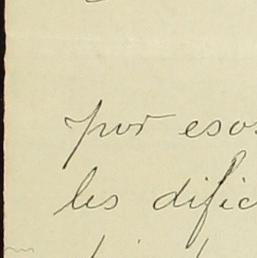 por esos
les dific